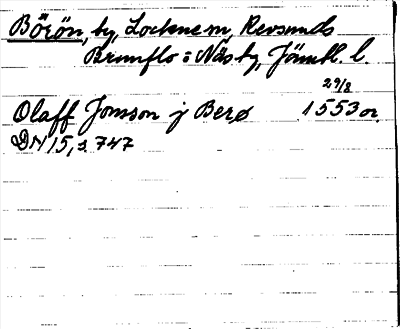 Börön, by, Lockne sn, Revsunds
Brunflo o Näs tg, Jämtl. l.
29/8
Olaff Jonsson j Berø 1553 or.
DN 15, s 747